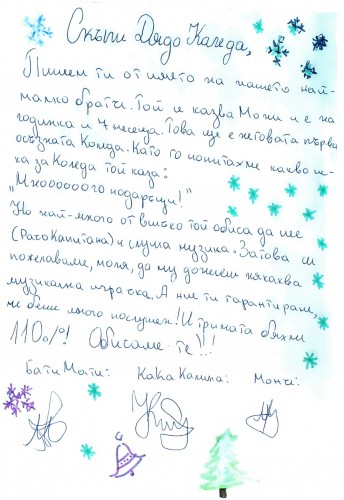 Скъпи Дядо Коледа,
Пишем ти от името на нашето най-
малко братче. Той се казва Мони и е на
годинка и 7 месеца. Това ще е неговата първа
осъзната Коледа. Като го попитахме какво ис-
ка за Коледа той каза:
"Мноооооого подаръци!"
Но най-много от всичко той обича да пее
(Рачо Капитана) и слуша музика. Затова си
пожелаваме, моля, да му донесеш някаква
музикална играчка. А ние ти гарантираме,
че беше много послушен! И тримата бяхме
110%! Обичаме те!!!
Бати Мати: Кака Калина: Мончи: